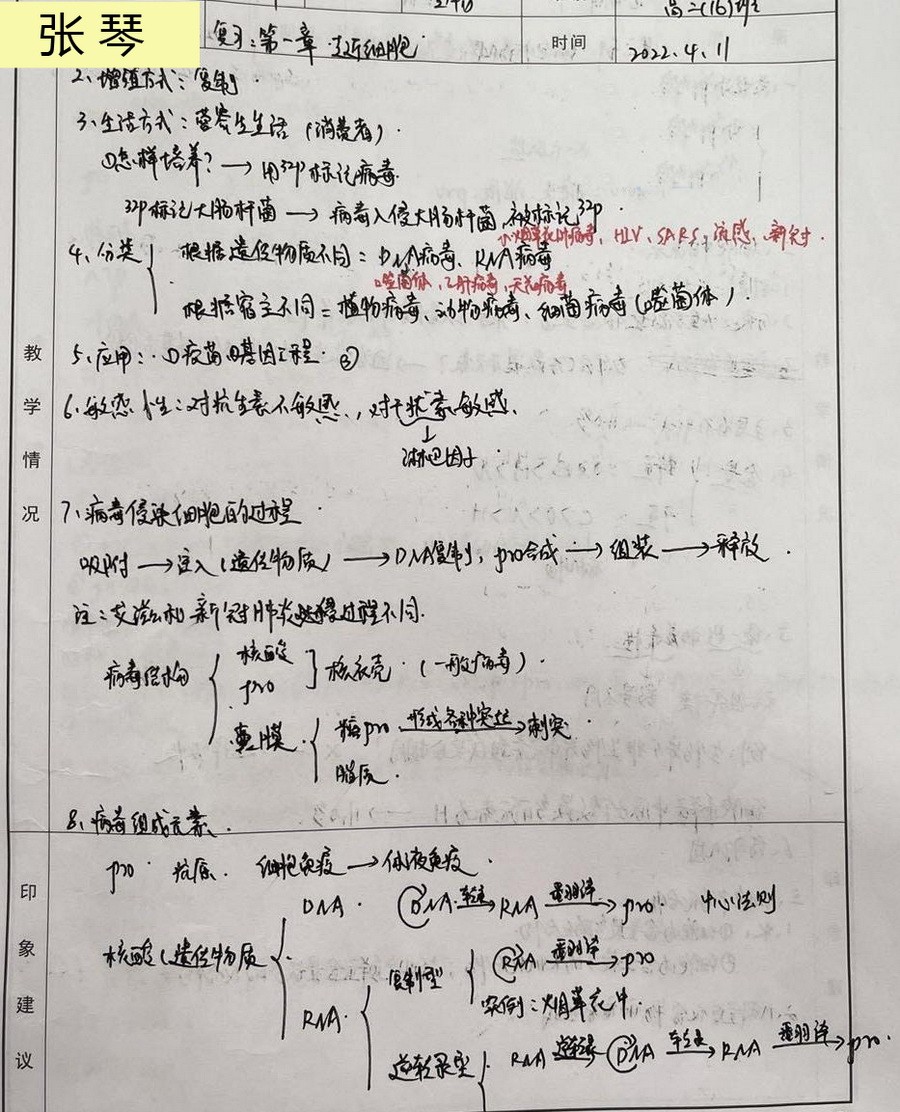 张琴
高二(16)班
复习:第一章 走近细胞
时间
2022.4.11
2、增殖方式:复制.
3、生活方式:营寄生生活(消费者).
①怎样培养?→用³²P标记病毒.
³²P标记大肠杆菌→病毒入侵大肠杆菌,被标记³²P.
烟草花叶病毒、HIV、SARS、流感、新冠.
4、分类
根据遗传物质不同:DNA病毒、RNA病毒
噬菌体、乙肝病毒、天花病毒
根据宿主不同:植物病毒、动物病毒、细菌病毒(噬菌体).
5、应用:①疫苗②基因工程③
6、敏感性:对抗生素不敏感,对干扰素敏感.
↓
淋巴因子
7、病毒侵染细胞的过程
吸附→注入(遗传物质)→DNA复制,pro合成→组装→释放.
注:艾滋和新冠肺炎过程不同.
病毒结构
核酸
pro
核衣壳.(一般病毒).
囊膜.
糖pro 形成各种突起→刺突.
脂质.
8、病毒组成元素.
pro. 抗原. 细胞免疫→体液免疫.
核酸(遗传物质
DNA. DNA 转录→RNA 翻译→pro. 中心法则
RNA.
复制型
RNA 翻译→pro
实例:烟草花叶.
逆转录型
RNA 逆转录 DNA 转录→RNA 翻译→pro.
教学情况
印象建议